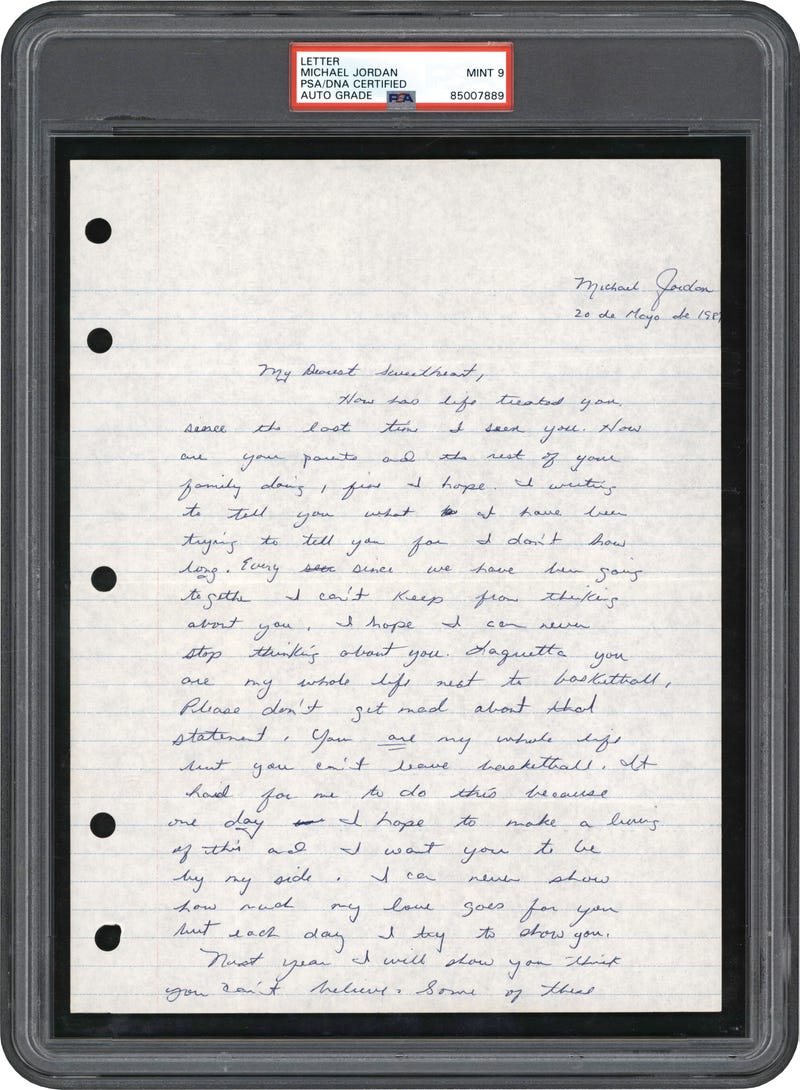 LETTER
MICHAEL JORDAN MINT 9
PSA/DNA CERTIFIED
AUTO GRADE PSA 85007889
Michael Jordan
20 de Mayo de 198
My Dearest Sweetheart,
How has life treated you
sence the last time I seen you. How
are your parents and the rest of your
family doing, fine I hope. I writing
to tell you what I have been
trying to tell you for I don't know
long. Every since we have been going
together I can't keep from thinking
about you. I hope I can never
stop thinking about you. Laquetta you
are my whole life next to basketball,
Please don't get mad about that
statement. You are my whole life
but you can't leave basketball. It
hard for me to do this because
one day I hope to make a living
of this and I want you to be
by my side. I can never show
how much my love goes for you
but each day I try to show you.
Next year I will show you think
you can't believe. Some of these